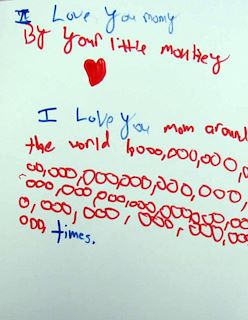 I Love You momy
By Your little monkey
I Love You mom around
the world 6,000,000,000,
00,000,000,000,000,000,
000,000,000,000,000,00
0,000,000,000,000,000
000, times.